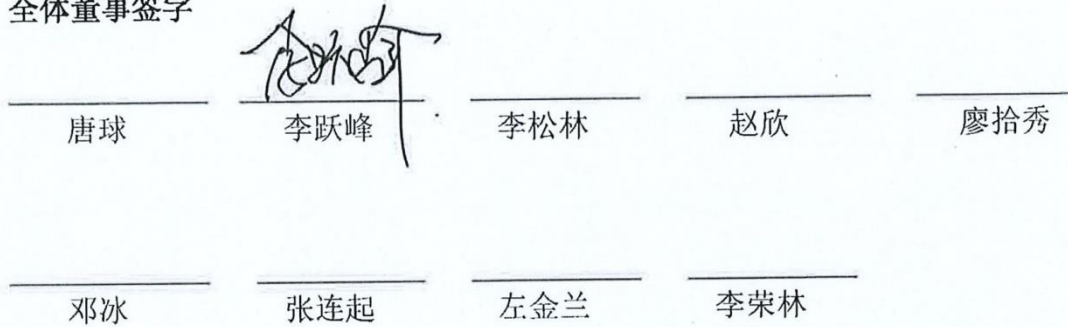 全体董事签字
唐球 李跃峰 李松林 赵欣 廖拾秀
邓冰 张连起 左金兰 李荣林